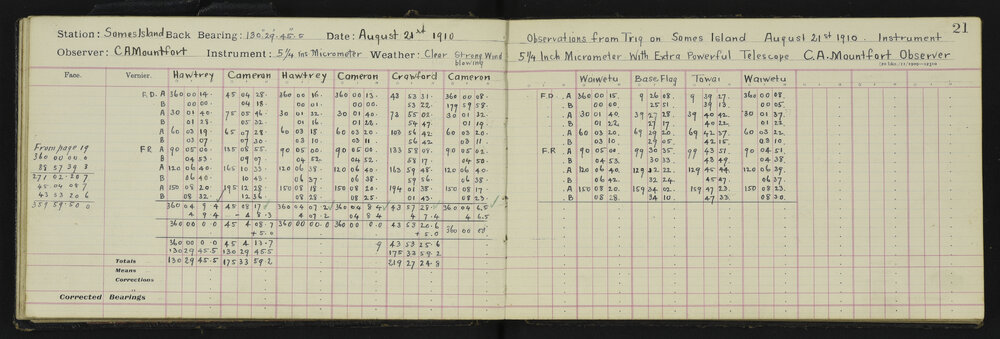 Station: Somes Island Back Bearing: 130° 29' 45" 5 Date: August 21st 1910
Observer: C.A. Mountfort Instrument: 5 1/4 ins Micrometer Weather: Clear Strong Wind blowing
Face. Vernier. Hawtrey Cameron Hawtrey Cameron Crawford Cameron
F.D. A 360 00 14. 45 04 28. 360 00 16. 360 00 13. 43 53 31. 360 00 08.
B 00 00. 04 18. 00 01. 00 00. 53 22. 179 59 58.
A 30 01 40. 75 05 46. 30 01 32. 30 01 40. 73 55 02. 30 01 32.
B 01 28. 05 32. 01 16. 01 28. 54 47. 01 19.
A 60 03 19. 65 07 28. 60 03 18. 60 03 20. 103 56 42. 60 03 20.
B 03 07. 07 30. 03 10. 03 11. 56 42. 03 11.
F.R. A 90 05 00. 135 08 55. 90 05 00. 90 05 00. 133 58 08. 90 05 02.
B 04 53. 09 07. 04 52. 04 52. 58 17. 04 50.
A 120 06 40. 165 10 33. 120 06 38. 120 06 40. 163 59 48. 120 06 40.
B 06 40. 10 43. 06 37. 06 38. 59 56. 06 38.
A 150 08 20. 195 12 28. 150 08 18. 150 08 20. 194 01 38. 150 08 17.
B 08 32. 12 36. 08 28. 08 25. 01 43. 08 23.
360 04 9.4 45 08 17 360 04 07.2 360 04 8.4 43 57 28. 360 04 6.5
4 9.4 - 4 8.3 4 07.2 04 8.4 4 7.4 4 6.5
360 00 0.0 45 4 08.7 360 00 00.0 360 00 0.0 43 53 20.6 360 00 00
+ 5.0 + 5.0
360 00 0.0 45 4 13.7 9 43 53 25.6
130 29 45.5 130 29 45.5 175 33 59.2
Totals 130 29 45.5 175 33 59.2 219 27 24.8
Means
Corrections
Corrected Bearings
From page 19
360 00 00.0
88 57 39.3
271 02 20.7
45 04 08.7
43 53 20.6
359 59 50.0
21
Observations from Trig on Somes Island August 21st 1910. Instrument
5 1/4 Inch Micrometer With Extra Powerful Telescope C.A. Mountfort Observer
Waiwetu Base Flag Towai Waiwetu
F.D. A 360 00 15. 9 26 08. 9 39 27. 360 00 08.
B 00 00. 25 51. 39 13. 00 05.
A 30 01 40. 39 27 28. 39 40 42. 30 01 37.
B 01 22. 27 17. 40 22. 01 22.
A 60 03 20. 69 29 20. 69 42 37. 60 03 22.
B 03 10. 29 05. 42 15. 03 10.
F.R. A 90 05 00. 99 30 55. 99 43 51. 90 04 51.
B 04 53. 30 33. 43 49. 04 38.
A 120 06 40. 129 32 22. 129 45 44. 120 06 39.
B 06 42. 32 24. 45 47. 06 37.
A 150 08 20. 159 34 02. 159 47 23. 150 08 23.
B 08 28. 34 10. 47 33. 08 30.